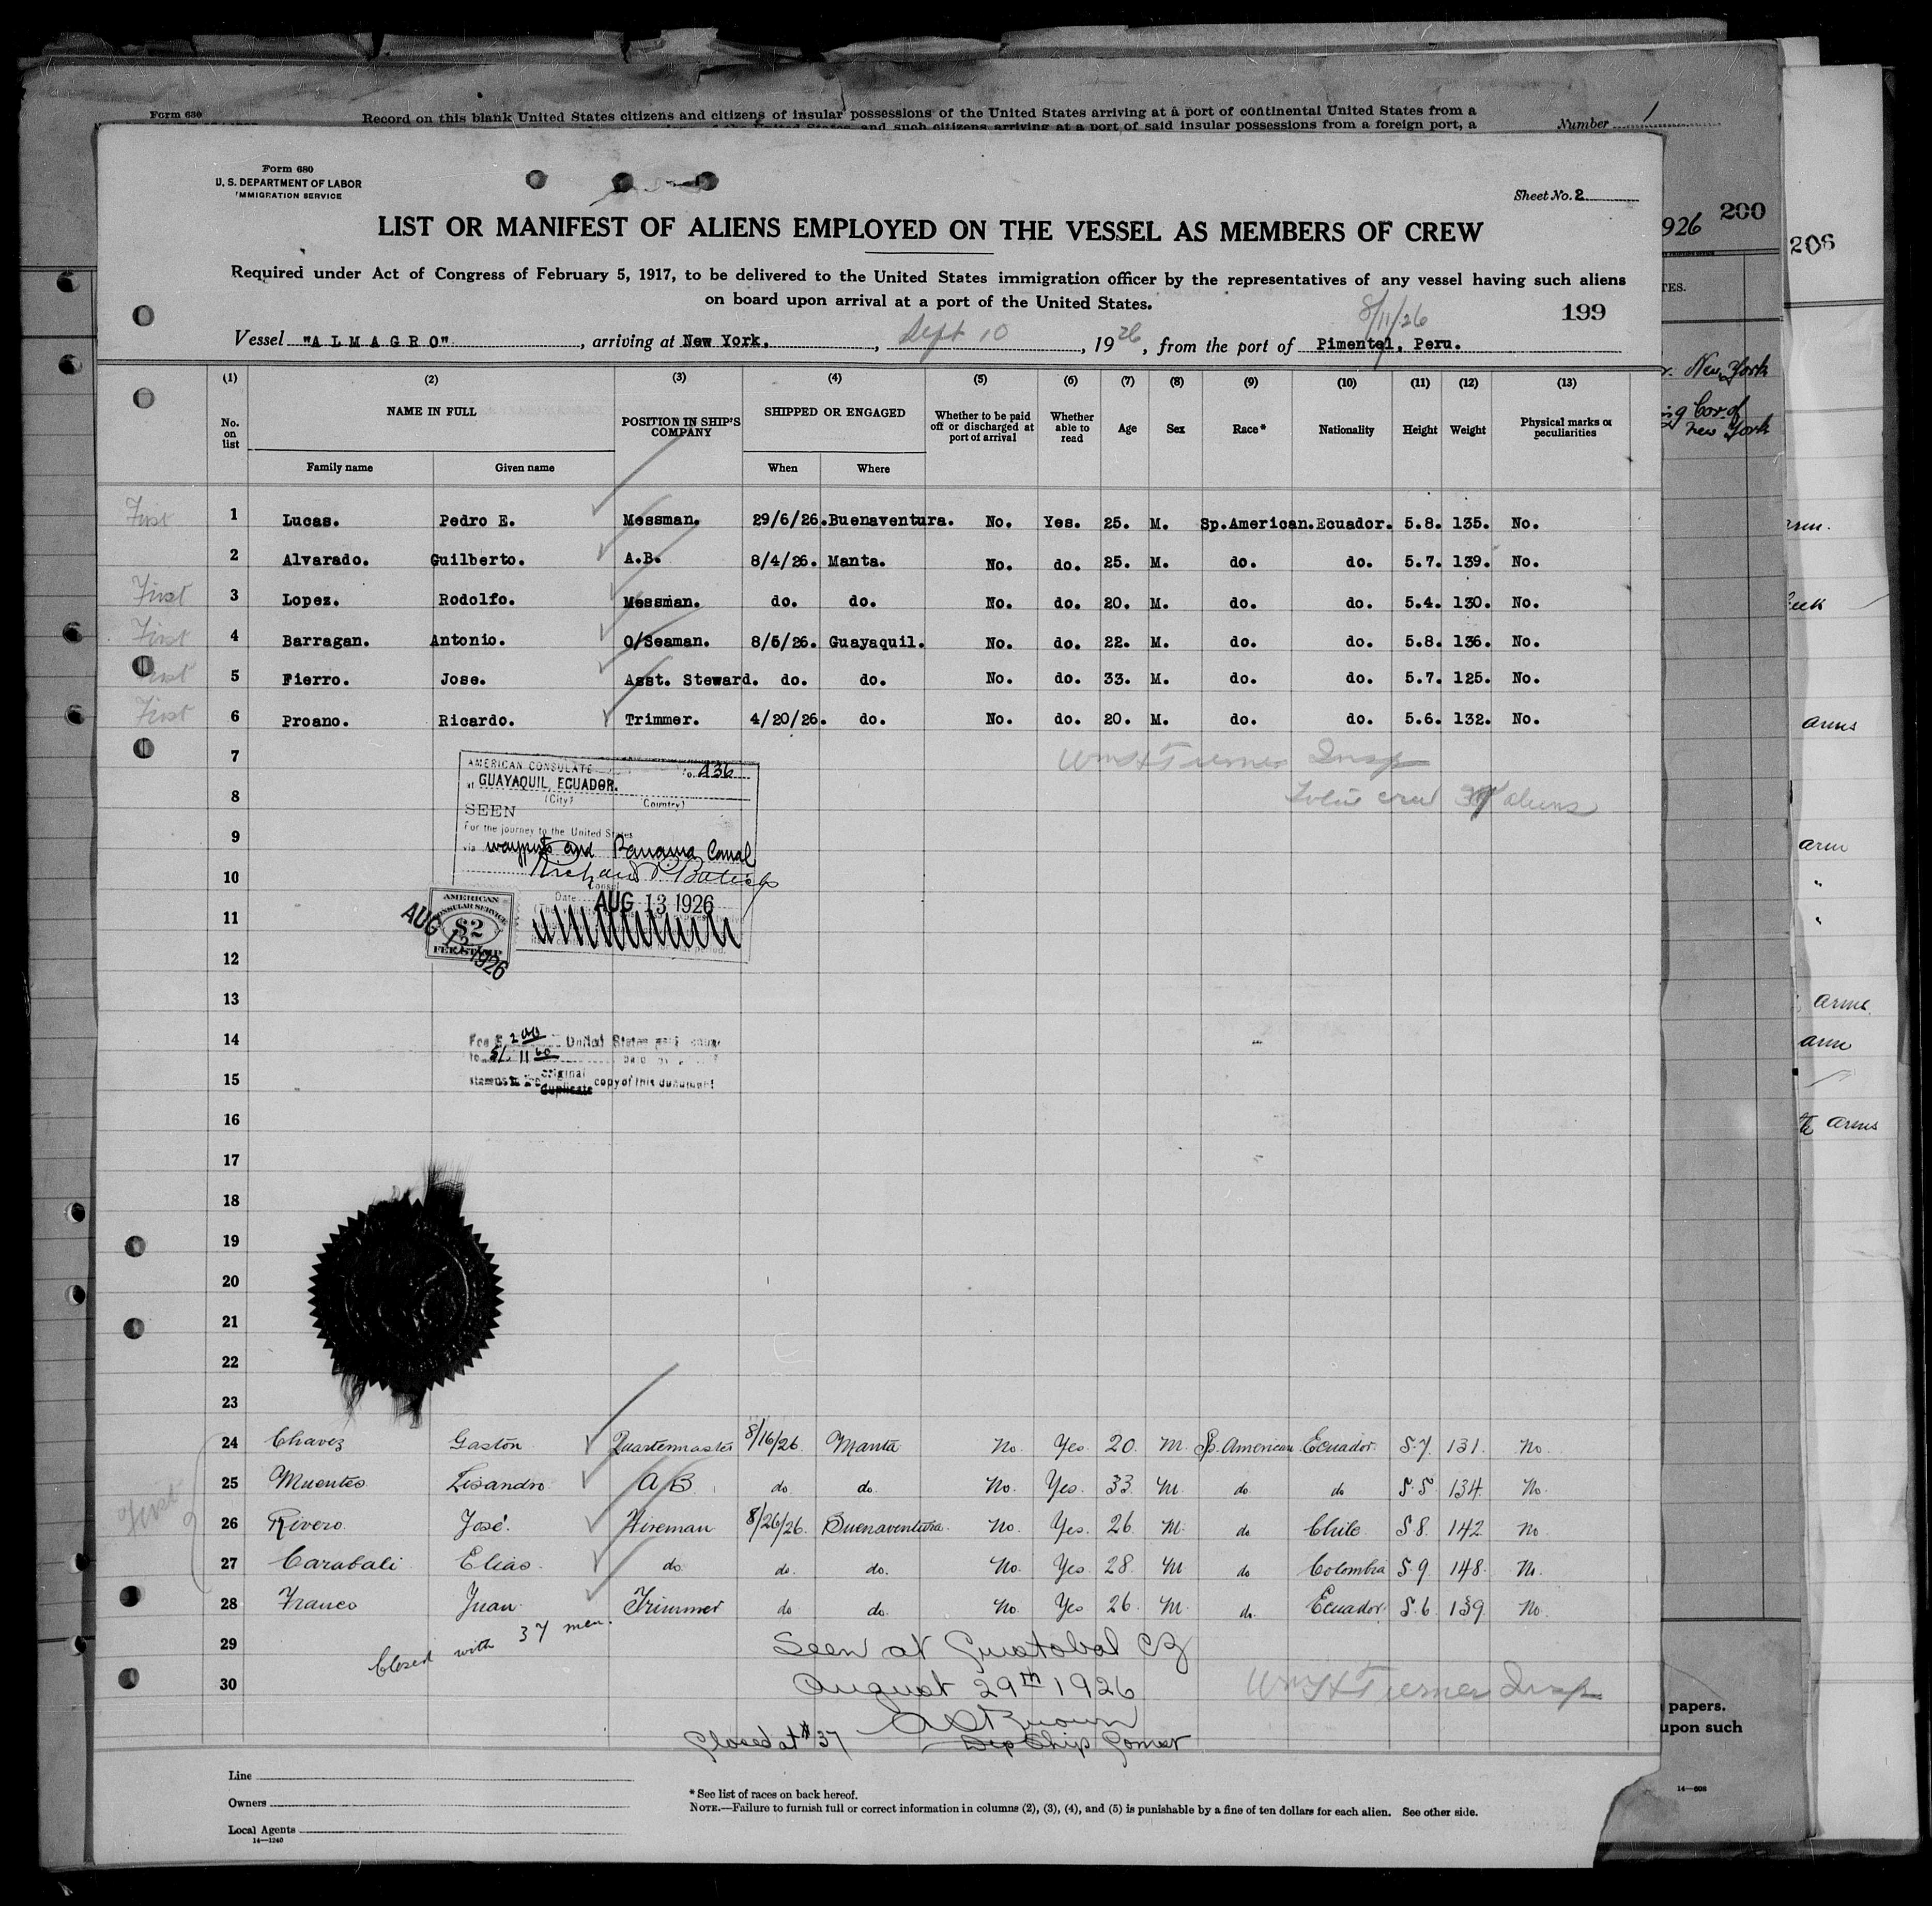 Form 630
Record on this blank United States citizens and citizens of insular possessions of the United States arriving at a port of continental United States from a
and such citizens arriving at a port of said insular possessions from a foreign port, a
Number 1
Form 680
U. S. DEPARTMENT OF LABOR
IMMIGRATION SERVICE
Sheet No. 2
926 200
206
LIST OR MANIFEST OF ALIENS EMPLOYED ON THE VESSEL AS MEMBERS OF CREW
Required under Act of Congress of February 5, 1917, to be delivered to the United States immigration officer by the representatives of any vessel having such aliens
on board upon arrival at a port of the United States.
8/11/26
199
Vessel "ALMAGRO", arriving at New York, Sept 10, 1926, from the port of Pimentel, Peru.
(1) (2) (3) (4) (5) (6) (7) (8) (9) (10) (11) (12) (13)
No. on list NAME IN FULL POSITION IN SHIP'S COMPANY SHIPPED OR ENGAGED Whether to be paid off or discharged at port of arrival Whether able to read Age Sex Race* Nationality Height Weight Physical marks or peculiarities
Family name Given name When Where
First 1 Lucas. Pedro E. Messman. 29/6/26. Buenaventura. No. Yes. 25. M. Sp.American. Ecuador. 5.8. 135. No.
2 Alvarado. Guilberto. A.B. 8/4/26. Manta. No. do. 25. M. do. do. 5.7. 139. No.
First 3 Lopez. Rodolfo. Messman. do. do. No. do. 20. M. do. do. 5.4. 130. No.
First 4 Barragan. Antonio. O/Seaman. 8/5/26. Guayaquil. No. do. 22. M. do. do. 5.8. 136. No.
First 5 Fierro. Jose. Asst. Steward. do. do. No. do. 33. M. do. do. 5.7. 125. No.
First 6 Proano. Ricardo. Trimmer. 4/20/26. do. No. do. 20. M. do. do. 5.6. 132. No.
7 Wm H Turner Insp
8 crew 37 aliens
AMERICAN CONSULATE No. 436
at GUAYAQUIL, ECUADOR.
(City) (Country)
SEEN
For the journey to the United States
9
via wayports and Panama Canal
10 Richard P.
Consul
Date AUG 13 1926
11
AMERICAN
CONSULAR SERVICE
$2
FEE STAMP
AUG 13 1926
12
13
14 Fee $ 2.00 United States
S/. 11 60
15 stamps original
duplicate copy of this document
16
17
18
19
20
21
22
23
24 Chavez Gastón Quartermaster 8/16/26. Manta No. Yes. 20. M. Sp. American Ecuador. 5.7. 131. No.
25 Muentes Lisandro A B do. do. No. Yes. 33. M. do do 5.5 134. No.
First 26 Rivero José. Fireman 8/26/26. Buenaventura. No. Yes. 26 M. do Chile 5.8. 142 No
27 Carabali Elias. do. do. do. No. Yes. 28. M do Colombia 5.9. 148. No.
28 Franco Juan. Trimmer do do. No. Yes 26. M. do. Ecuador 5.6. 139. No.
Closed with 37 men.
29 Seen at Cristobal CZ
30 August 29th 1926 Wm H Turner Insp
Closed at #37
Line
Owners
Local Agents
14—1240
* See list of races on back hereof.
NOTE.—Failure to furnish full or correct information in columns (2), (3), (4), and (5) is punishable by a fine of ten dollars for each alien. See other side.
TES.
New York
Cor. of
New York
arm.
arms
arm
"
"
arms.
arm
arms
papers.
upon such
14—608